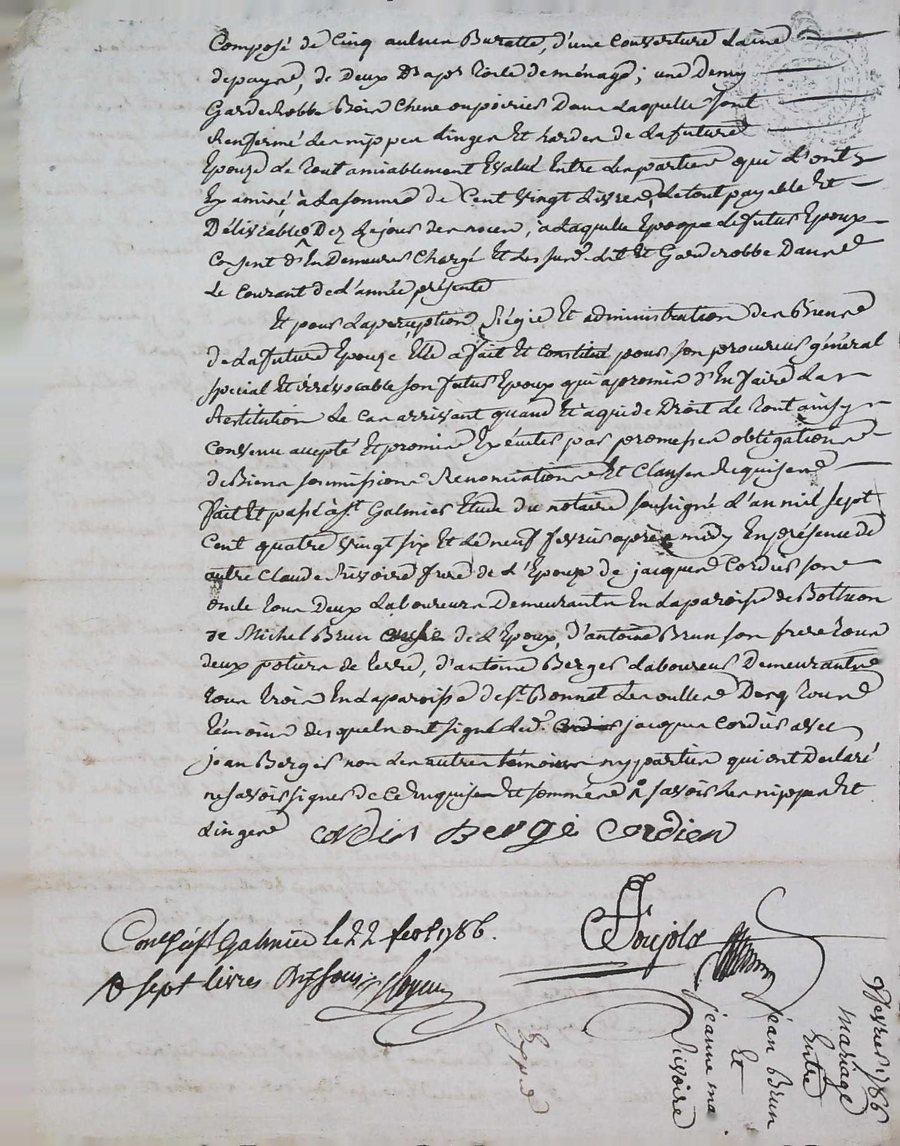 Composé de Cinq aulnes Buratte, d'une Couverture Laine
de payne, de Deux Draps Toile de ménage; une Demy
Garderobbe Bois Chene ou poirier Dans Laquelle sont
Renfermé les nippes linges Et hardes de La future
Epouze Le Tout amiablement Evalué Entre Les parties qui L'ont
Examiné à La somme de Cent Vingt Livres, Le tout payable Et
Délivrable Dez Le jour des noces, à Laquelle Epoque Le futur Epoux
Consent d'En Demeurer Chargé Et des susd. lit Et Garderobbe Dans
Le Courant de L'année présente
Et pour La perception Régie Et administration des Biens
de La future Epouze Elle a fait Et Constitué pour son procureur général
spécial Et irrévocable son futur Epoux qui a promis d'En faire La
Restitution Le Cas arrivant quand Et à qui de Droit Le Tout ainsy
Convenu accepté Et promis Exécuter par promesses obligations
de Biens soumissions Renonciations Et Clauses Requises
fait Et passé à St Galmier Etude du notaire soussigné L'an mil sept
Cent quatre Vingt six Et Le neuf fevrier après midy En présence de
autre Claude Rivoire frere de L'Epouze de jacques Cordier son
oncle Tous Deux Laboureurs Demeurants En La paroisse de
de Michel Brun de L'Epoux, d'antoine Brun son frere Tous
deux potiers de Terre, d'antoine Berger Laboureur Demeurants
Tous Trois En La paroisse de St Bonnet Les oulles Tous
Témoins desquels ont signé Led. jacques Cordier avec
jean Berger non Les autres témoins ny parties qui ont Déclaré
ne savoir signer de Ce Enquis Et sommés à savoir Les nippes Et
Linges Cordier Bergé Cordier
Conlé à St Galmier le 22 fevr 1786.
R sept livres dix sous
Soujolz
9 fevrier 1786
mariage
Entre
jean Brun
Et
jeanne ma
Rivoire
Exppé